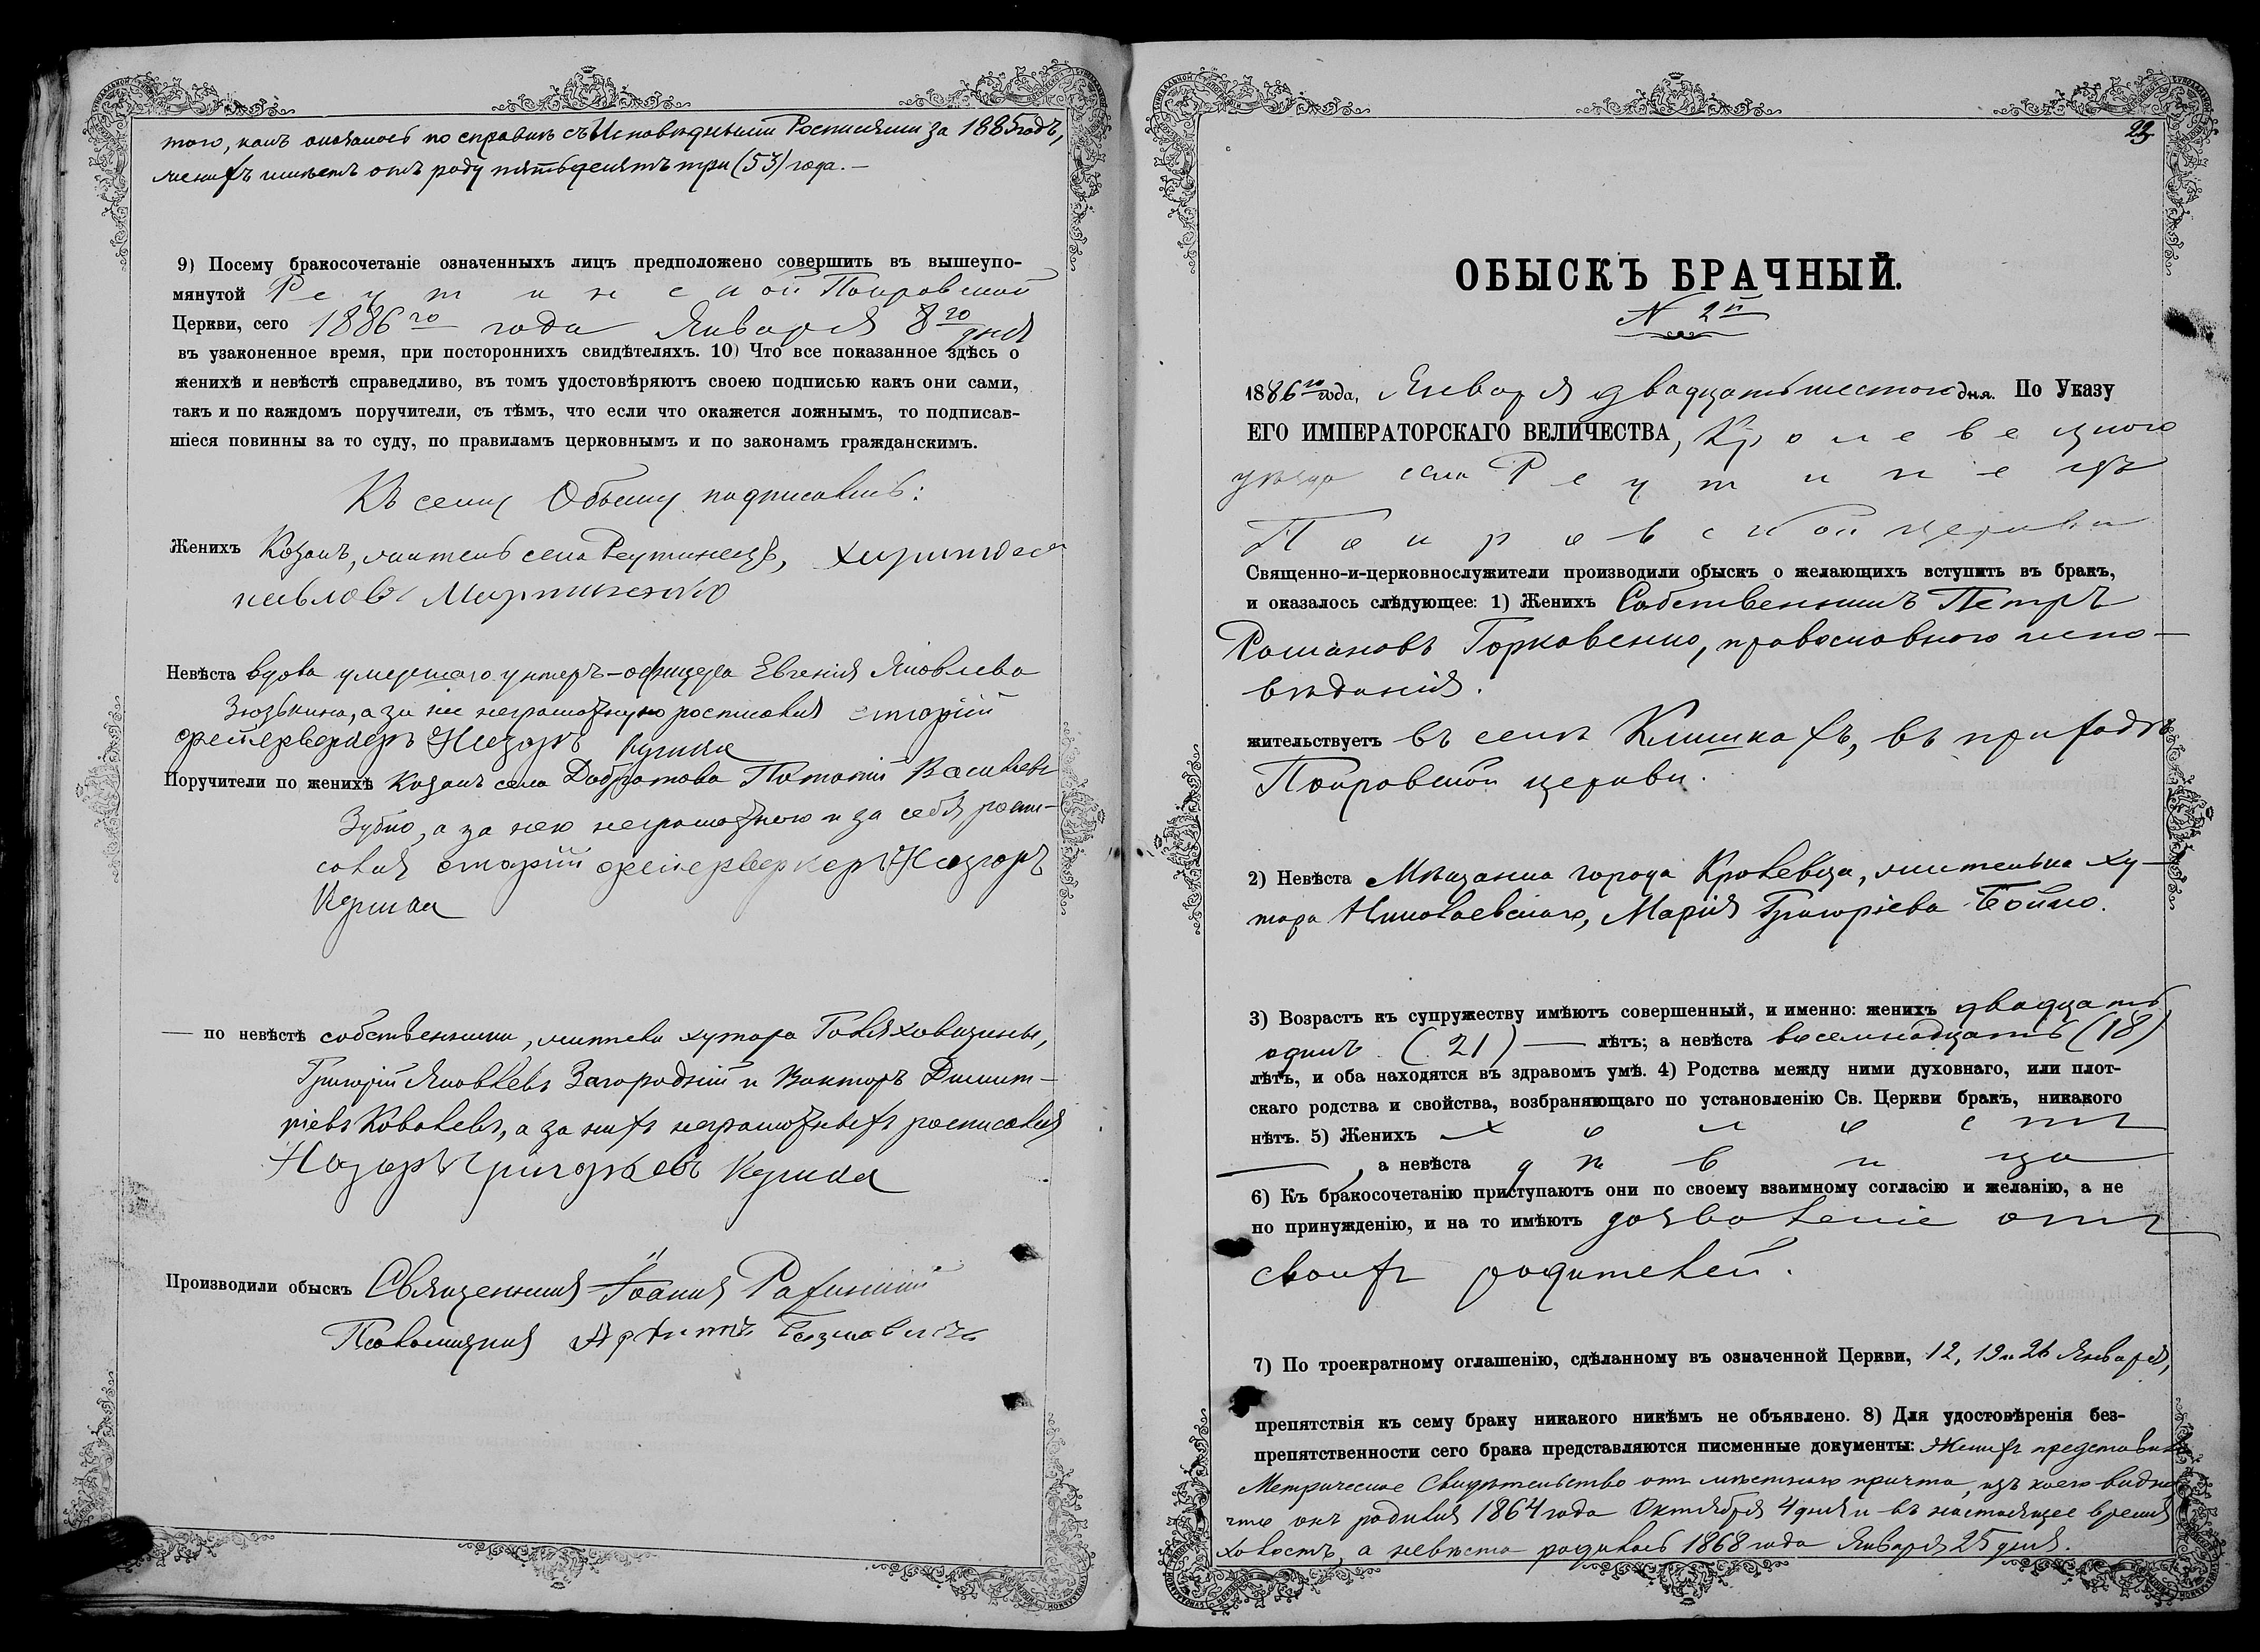 того, какъ оказалось по справкѣ съ Исповѣдными Росписями за 1885 годъ,
женихъ имѣетъ отъ роду пятьдесятъ три (53) года. —
9) Посему бракосочетаніе означенныхъ лицъ предположено совершить въ вышеупо-
мянутой Реутинской Покровской
Церкви, сего 1886го года Января 8го дня
въ узаконенное время, при постороннихъ свидѣтеляхъ. 10) Что все показанное здѣсь о
женихѣ и невѣстѣ справедливо, въ томъ удостовѣряютъ своею подписью какъ они сами,
такъ и по каждомъ поручители, съ тѣмъ, что если что окажется ложнымъ, то подписав-
шіеся повинны за то суду, по правиламъ церковнымъ и по законамъ гражданскимъ.
Къ сему Обыску подписались:
Женихъ Козакъ, житель села Реутинецъ,
Мартиненко
Невѣста вдова умершаго унтеръ-офицера Евгенія Яковлева
Зюзькина, а за неё неграмотную росписался старшій
фейерверкеръ Назаръ Кушка
Поручители по женихѣ Козакъ села Добротова Потапій Васильевъ
Зубко, а за него неграмотного и за себя роспи-
сался старшій фейерверкеръ Назаръ
Кушка
— по невѣстѣ собственники, жители хутора Говяховщины,
Григорій Яковлевъ Загородній и Викторъ Димит-
ріевъ Ковалевъ, а за нихъ неграмотныхъ росписался
Назаръ Григорьевъ Кушка
Производили обыскъ Священникъ Іоаннъ
Псаломщикъ
23
ОБЫСКЪ БРАЧНЫЙ.
N 2й
1886го года, Января двадцать шестого дня. По Указу
ЕГО ИМПЕРАТОРСКАГО ВЕЛИЧЕСТВА, Кролевецкого
уѣзда села Реутинецъ
Покровской церкви
Священно-и-церковнослужители производили обыскъ о желающихъ вступить въ бракъ,
и оказалось слѣдующее: 1) Женихъ Собственникъ Петръ
Романовъ Горковенко, православного испо-
вѣданія.
жительствуетъ въ селѣ Клишкахъ, въ приходѣ
Покровской церкви.
2) Невѣста Мѣщанка города Кролевца, жителька ху-
тора Николаевского, Марія Григоріева Бойко.
3) Возрастъ къ супружеству имѣютъ совершенный, и именно: женихъ двадцать
одинъ (21) — лѣтъ; а невѣста восемнадцать (18)
лѣтъ, и оба находятся въ здравомъ умѣ. 4) Родства между ними духовнаго, или плот-
скаго родства и свойства, возбраняющаго по установленію Св. Церкви бракъ, никакого
нѣтъ. 5) Женихъ холостъ
—, а невѣста дѣвица
6) Къ бракосочетанію приступаютъ они по своему взаимному согласію и желанію, а не
по принужденію, и на то имѣютъ дозволеніе отъ
своихъ родителей.
7) По троекратному оглашенію, сдѣланному въ означенной Церкви, 12, 19 и 26 Января,
препятствія къ сему браку никакого никѣмъ не объявлено. 8) Для удостовѣренія без-
препятственности сего брака представляются писменные документы: Женихъ представилъ
Метрическое Свидѣтельство отъ мѣстного причта, изъ коего видно
что онъ родился 1864 года Октября 4 дня и въ настоящее время
холостъ, а невѣста родилась 1868 года Января 25 дня.